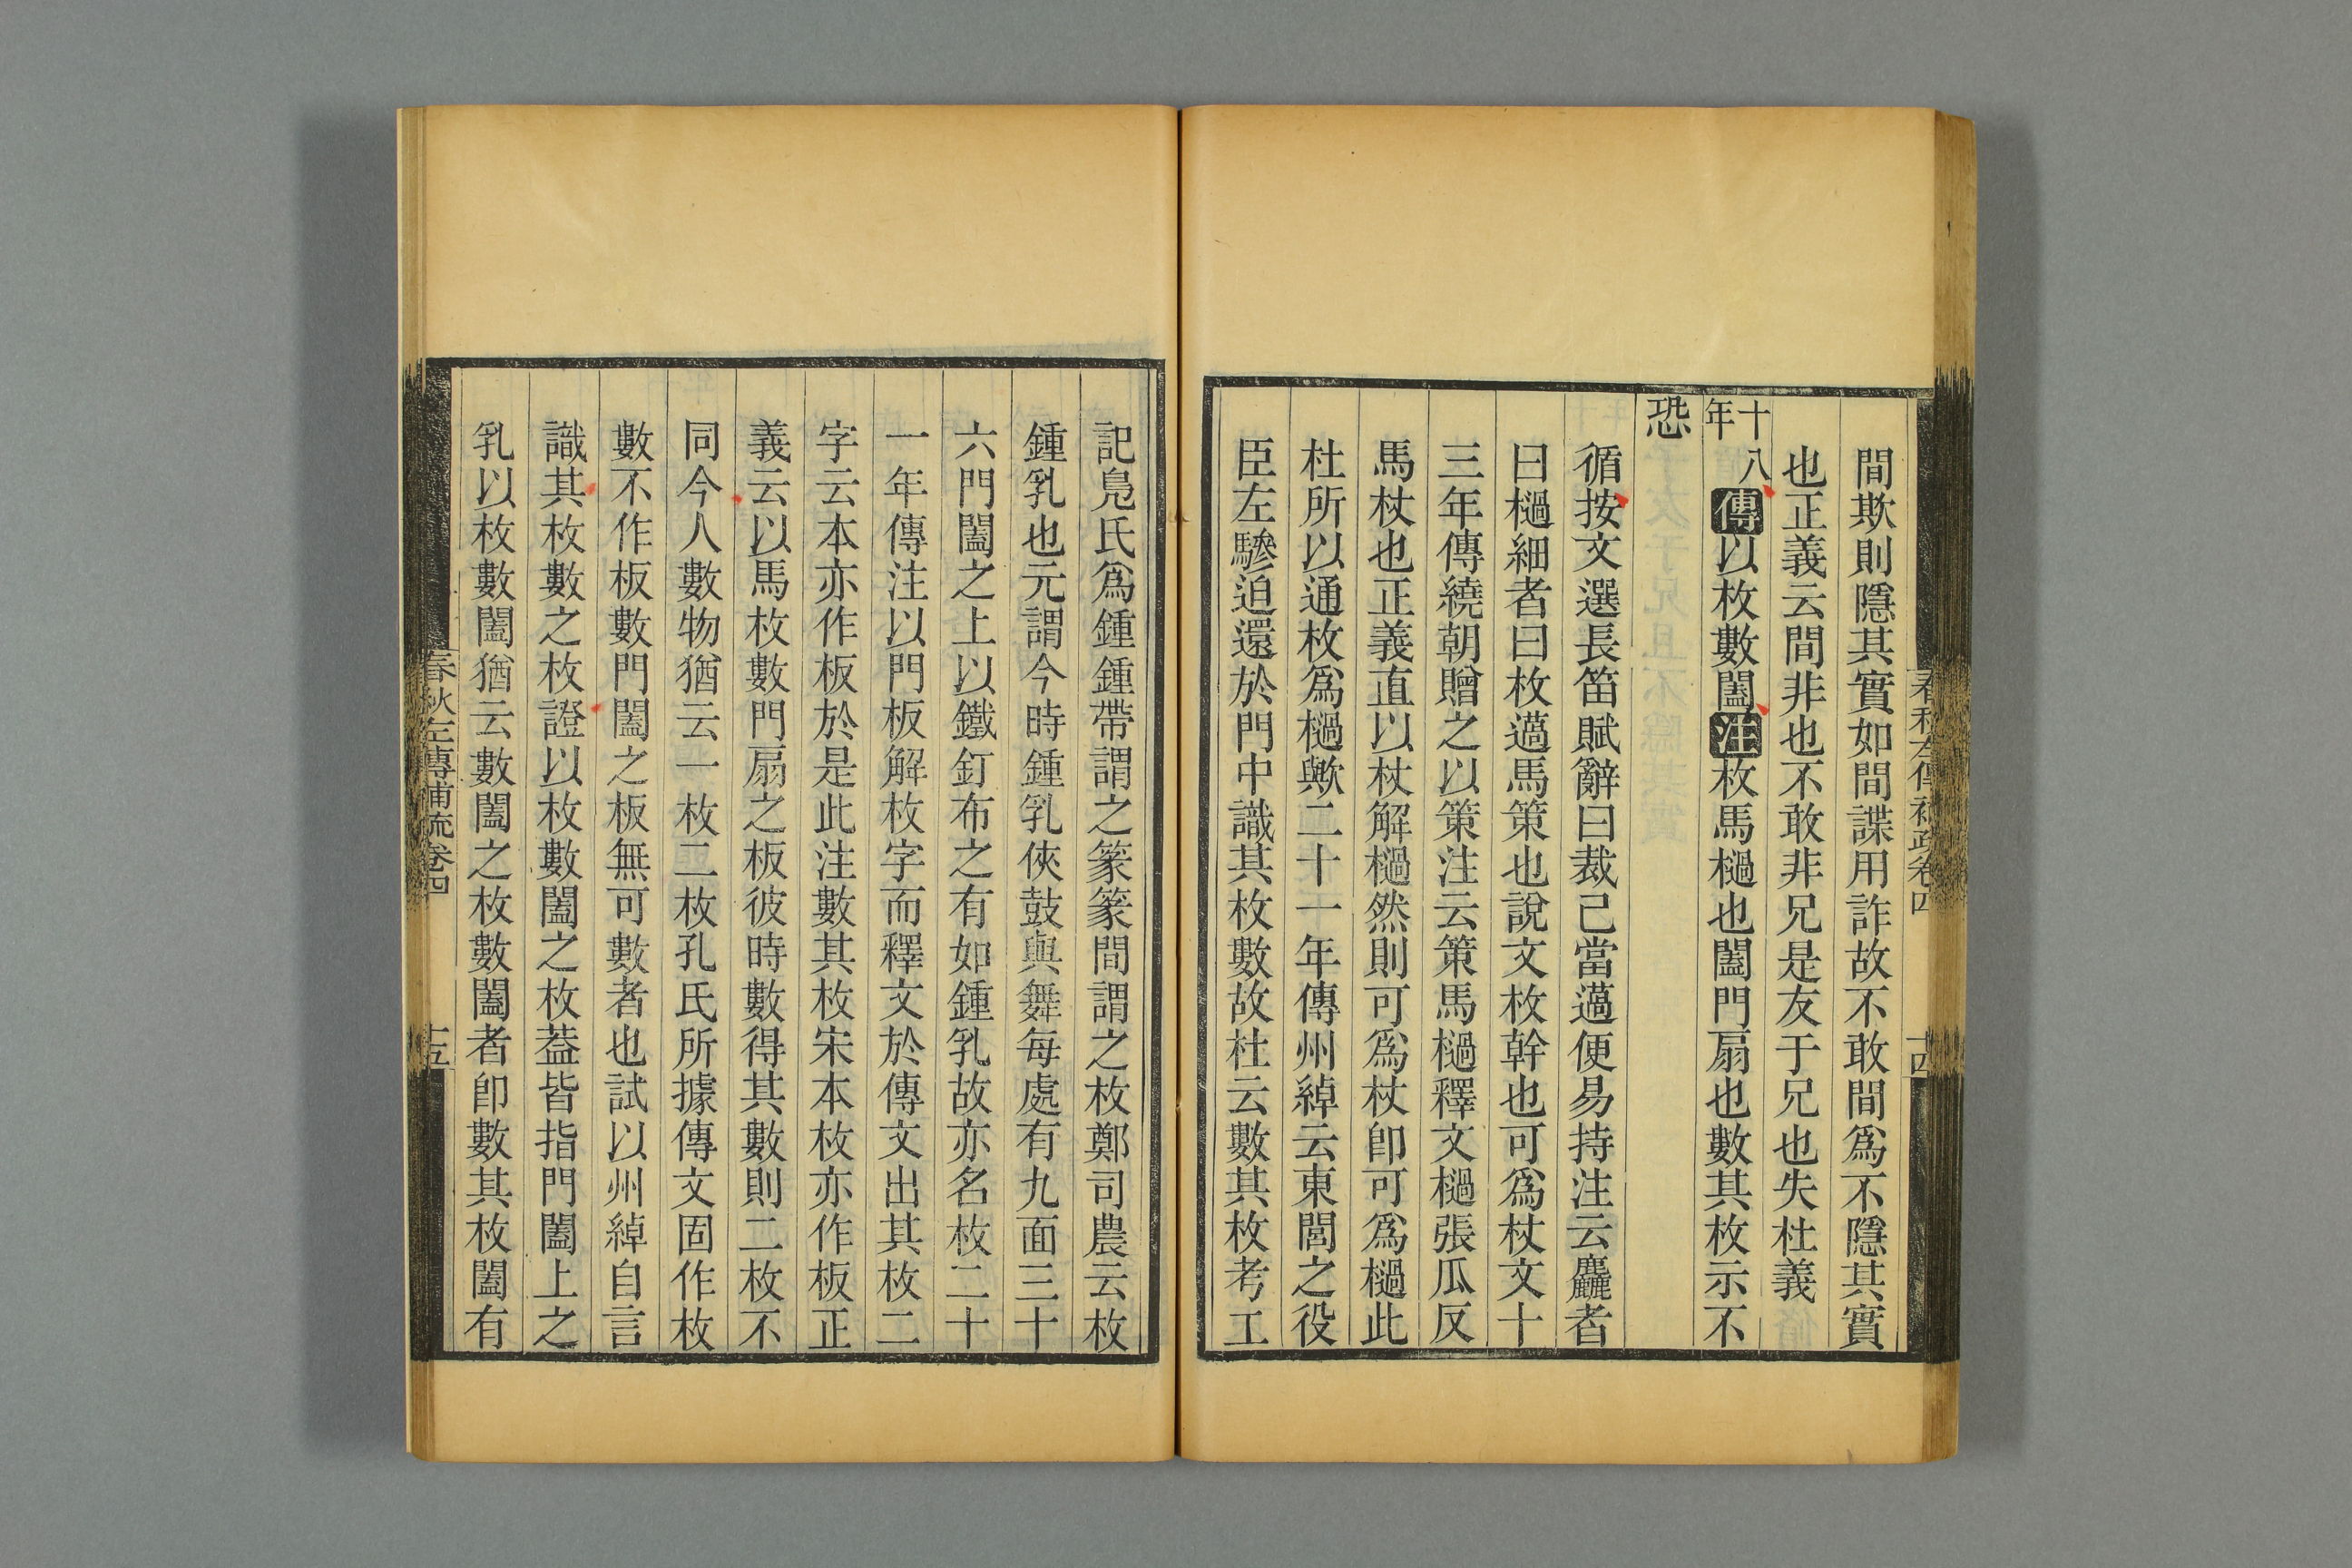 間欺則隱其實如間諜用詐故不敢間爲不隱其實
也正義云間非也不敢非兄是友于兄也失杜義
十八年傳以枚數闔注枚馬檛也闔門扇也數其枚示不
恐
循按文選長笛賦辭曰裁己當薖便易持注云麤者
曰檛細者曰枚薖馬策也說文枚幹也可爲杖文十
三年傳繞朝贈之以策注云策馬檛釋文檛張瓜反
馬杖也正義直以杖解檛然則可爲杖卽可爲檛此
杜所以通枚爲檛歟二十一年傳州綽云東閭之役
臣左驂迫還於門中識其枚數故杜云數其枚考工
春秋左傳補疏卷四
十四
記鳧氏爲鍾鍾帶謂之篆篆間謂之枚鄭司農云枚
鍾乳也元謂今時鍾乳俠鼓與舞每處有九面三十
六門闔之上以鐵釘布之有如鍾乳故亦名枚二十
一年傳注以門板解枚字而釋文於傳文出其枚二
字云本亦作板於是此注數其枚宋本枚亦作板正
義云以馬枚數門扇之板彼時數得其數則二枚不
同今人數物猶云一枚二枚孔氏所據傳文固作枚
數不作板數門闔之板無可數者也試以州綽自言
識其枚數之枚證以枚數闔之枚葢皆指門闔上之
乳以枚數闔猶云數闔之枚數闔者卽數其枚闔有
春秋左傳補疏卷四
十五